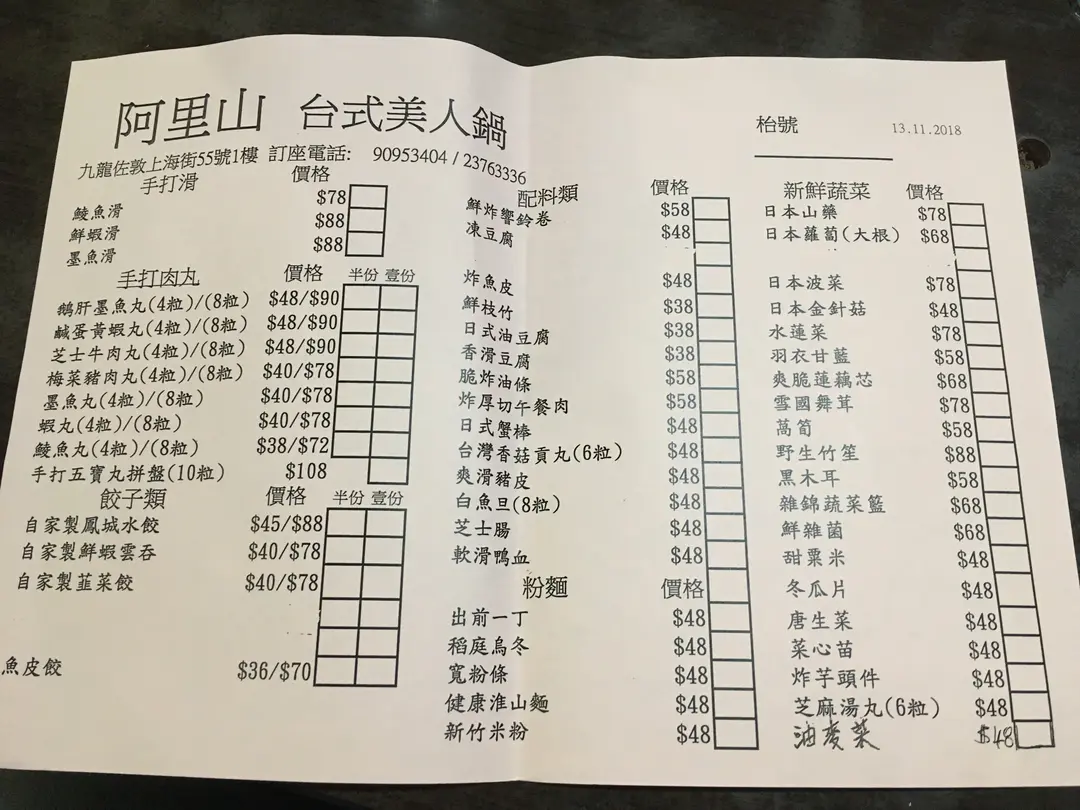 阿里山 台式美人鍋
九龍佐敦上海街55號1樓 訂座電話: 90953404 / 23763336
枱號
13.11.2018
手打滑 價格
鯪魚滑 $78
鮮蝦滑 $88
墨魚滑 $88
手打肉丸 價格 半份 壹份
鵝肝墨魚丸(4粒)/(8粒) $48/$90
鹹蛋黃蝦丸(4粒)/(8粒) $48/$90
芝士牛肉丸(4粒)/(8粒) $48/$90
梅菜豬肉丸(4粒)/(8粒) $40/$78
墨魚丸(4粒)/(8粒) $40/$78
蝦丸(4粒)/(8粒) $40/$78
鯪魚丸(4粒)/(8粒) $38/$72
手打五寶丸拼盤(10粒) $108
餃子類 價格 半份 壹份
自家製鳳城水餃 $45/$88
自家製鮮蝦雲吞 $40/$78
自家製韮菜餃 $40/$78
魚皮餃 $36/$70
配料類 價格
鮮炸響鈴卷 $58
凍豆腐 $48
炸魚皮 $48
鮮枝竹 $38
日式油豆腐 $38
香滑豆腐 $38
脆炸油條 $58
炸厚切午餐肉 $58
日式蟹棒 $48
台灣香菇貢丸(6粒) $48
爽滑豬皮 $48
白魚旦(8粒) $48
芝士腸 $48
軟滑鴨血 $48
粉麵 價格
出前一丁 $48
稻庭烏冬 $48
寬粉條 $48
健康淮山麵 $48
新竹米粉 $48
新鮮蔬菜 價格
日本山藥 $78
日本蘿蔔(大根) $68
日本波菜 $78
日本金針菇 $48
水蓮菜 $78
羽衣甘藍 $58
爽脆蓮藕芯 $68
雪國舞茸 $78
萵筍 $58
野生竹笙 $88
黑木耳 $58
雜錦蔬菜籃 $68
鮮雜菌 $68
甜粟米 $48
冬瓜片 $48
唐生菜 $48
菜心苗 $48
炸芋頭件 $48
芝麻湯丸(6粒) $48
油麥菜 $48